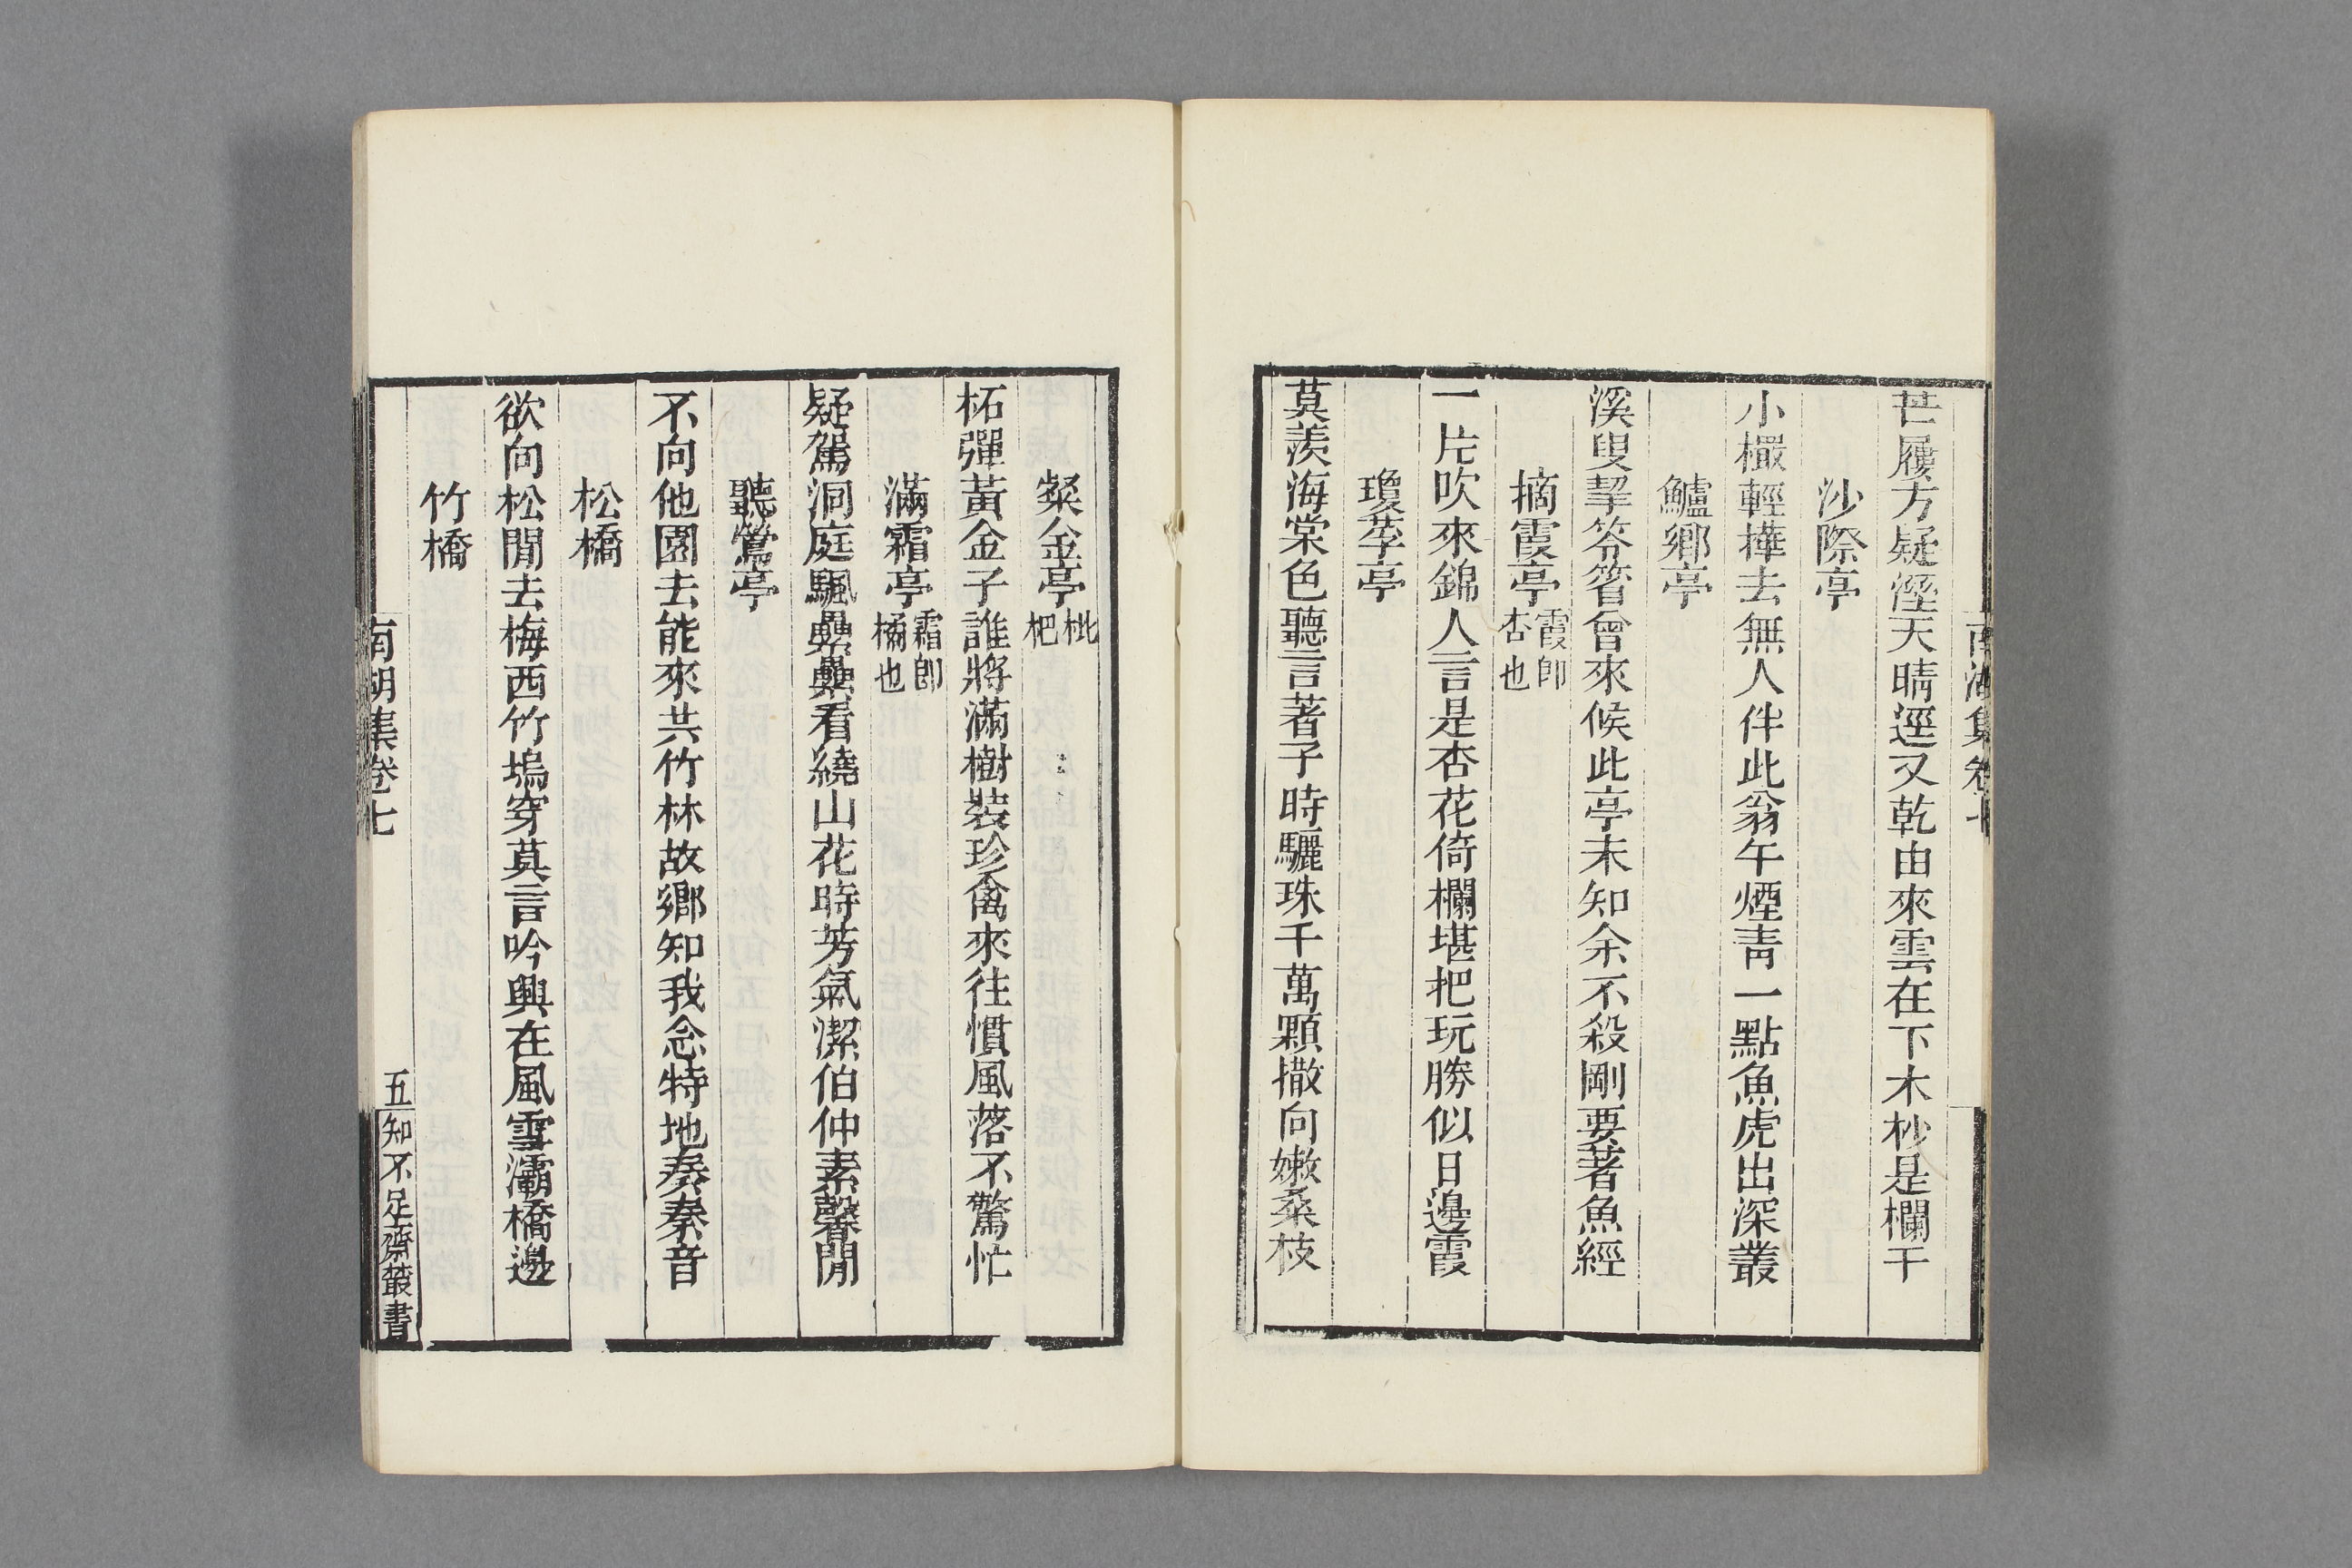 芒屨方疑溼天晴逕又乾由來雲在下木杪是欄干
沙際亭
小檝輕撶去無人伴此翁午煙靑一點魚虎出深叢
鱸鄉亭
溪叟挈笭箵曾來候此亭未知余不殺剛要著魚經
摘霞亭霞卽杏也
一片吹來錦人言是杏花倚欄堪把玩勝似日邊霞
瓊葶亭
莫羨海棠色聽言著子時驪珠千萬顆撒向嫩桑枝
粲金亭枇杷
柘彈黃金子誰將滿樹裝珍禽來往慣風落不驚忙
滿霜亭霜卽橘也
疑駕洞庭颿鼻鼻看繞山花時芳氣潔伯仲素馨閒
聽鶯亭
不向他園去能來共竹林故鄉知我念特地奏秦音
松橋
欲向松閒去梅西竹塢穿莫言吟興在風雪灞橋邊
竹橋
南湖集卷七
五
知不足齋叢書